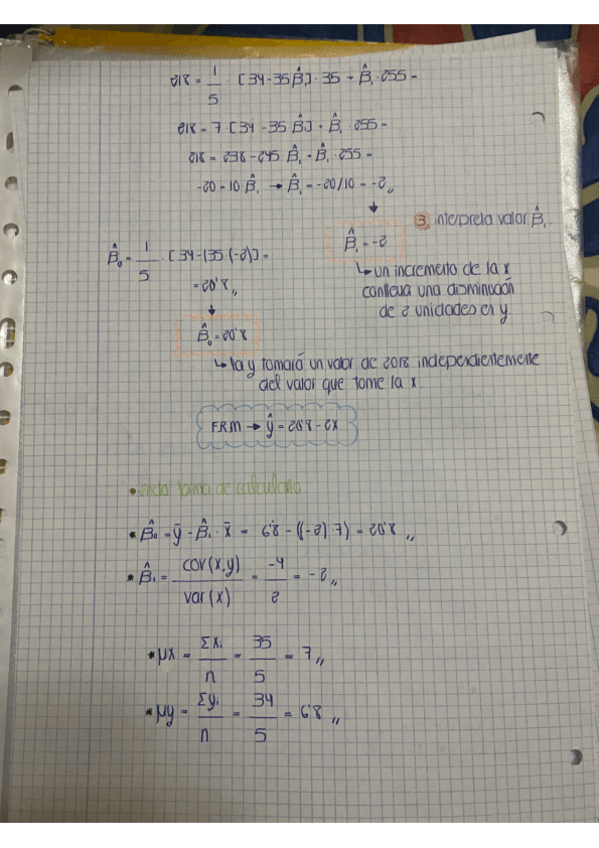 218 = 1/5 · [34-35β̂₁] · 35 + β̂₁ · 255 =
218 = 7 · [34 - 35 β̂₁] + β̂₁ · 255 =
218 = 238 - 245 β̂₁ + β̂₁ · 255 =
-20 = 10 · β̂₁ → β̂₁ = -20/10 = -2 "
3. interpreta valor β̂₁.
β̂₁ = -2
↳ un incremento de la x
conlleva una disminución
de 2 unidades en y
β̂₀ = 1/5 · [34-(35·(-2)] =
= 20'8 "
β̂₀ = 20'8
↳ la y tomará un valor de 20'8 independientemente
del valor que tome la x.
FRM → ŷ = 20'8 - 2x
• forma de calcularlo
• β̂₀ = ȳ - β̂₁ · x̄ = 6'8 - ((-2)·(7) = 20'8 "
• β̂₁ = cov(x,y)/var(x) = -4/2 = -2 "
• μx = Σxᵢ/n = 35/5 = 7 "
• μy = Σyᵢ/n = 34/5 = 6'8 "